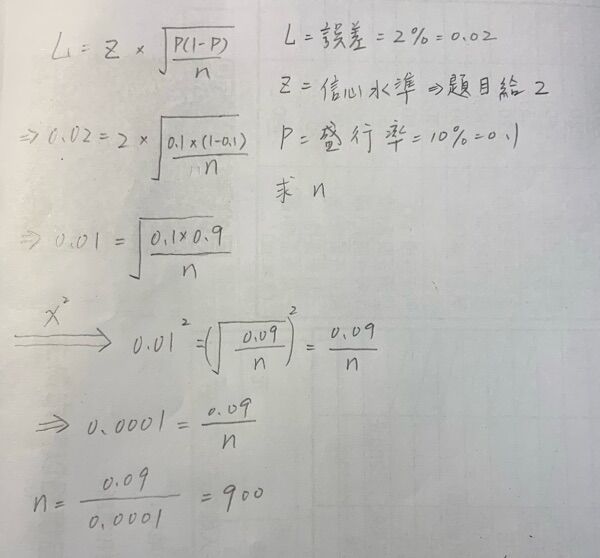 L = Z × √(P(1-P)/n)
L = 誤差 = 2% = 0.02
Z = 信心水準 ⇒ 題目給 2
⇒ 0.02 = 2 × √(0.1×(1-0.1)/n)
P = 盛行率 = 10% = 0.1
求 n
⇒ 0.01 = √(0.1×0.9/n)
x²
⇒ 0.01² = (√(0.09/n))² = 0.09/n
⇒ 0.0001 = 0.09/n
n = 0.09/0.0001 = 900